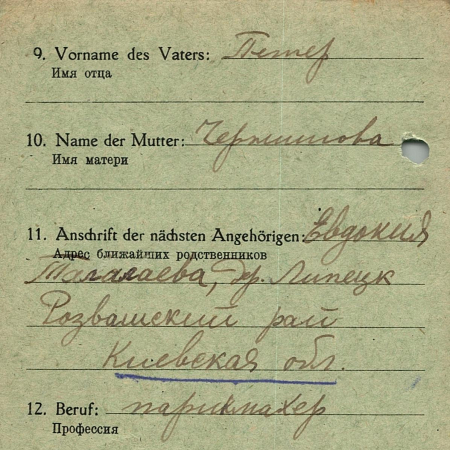 9. Vorname des Vaters: Петер
Имя отца
10. Name der Mutter: Черкшнова
Имя матери
11. Anschrift der nächsten Angehörigen: Евдокия
Адрес ближайших родственников
Талалаева, др. Липецк
Розважский рай
Киевская обл.
12. Beruf: парикмахер
Профессия